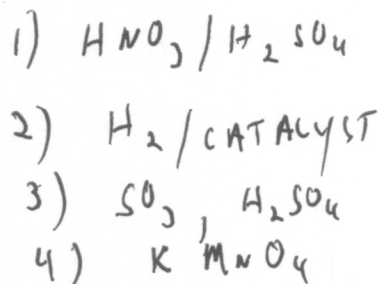 1) HNO3/H2SO4
2) H2/CATALYST
3) SO3, H2SO4
4) KMnO4